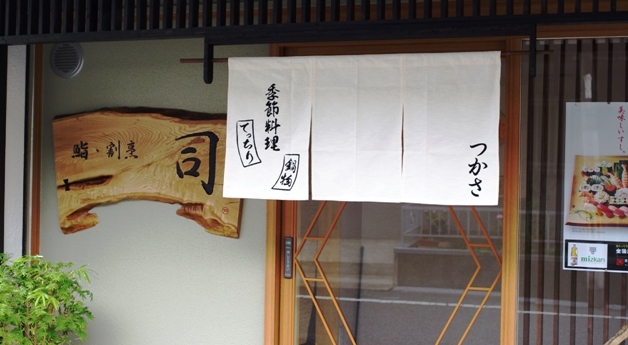 鮨・割烹
司
季節料理
てっちり
鍋物
つかさ
美味しいすし。
mizkan